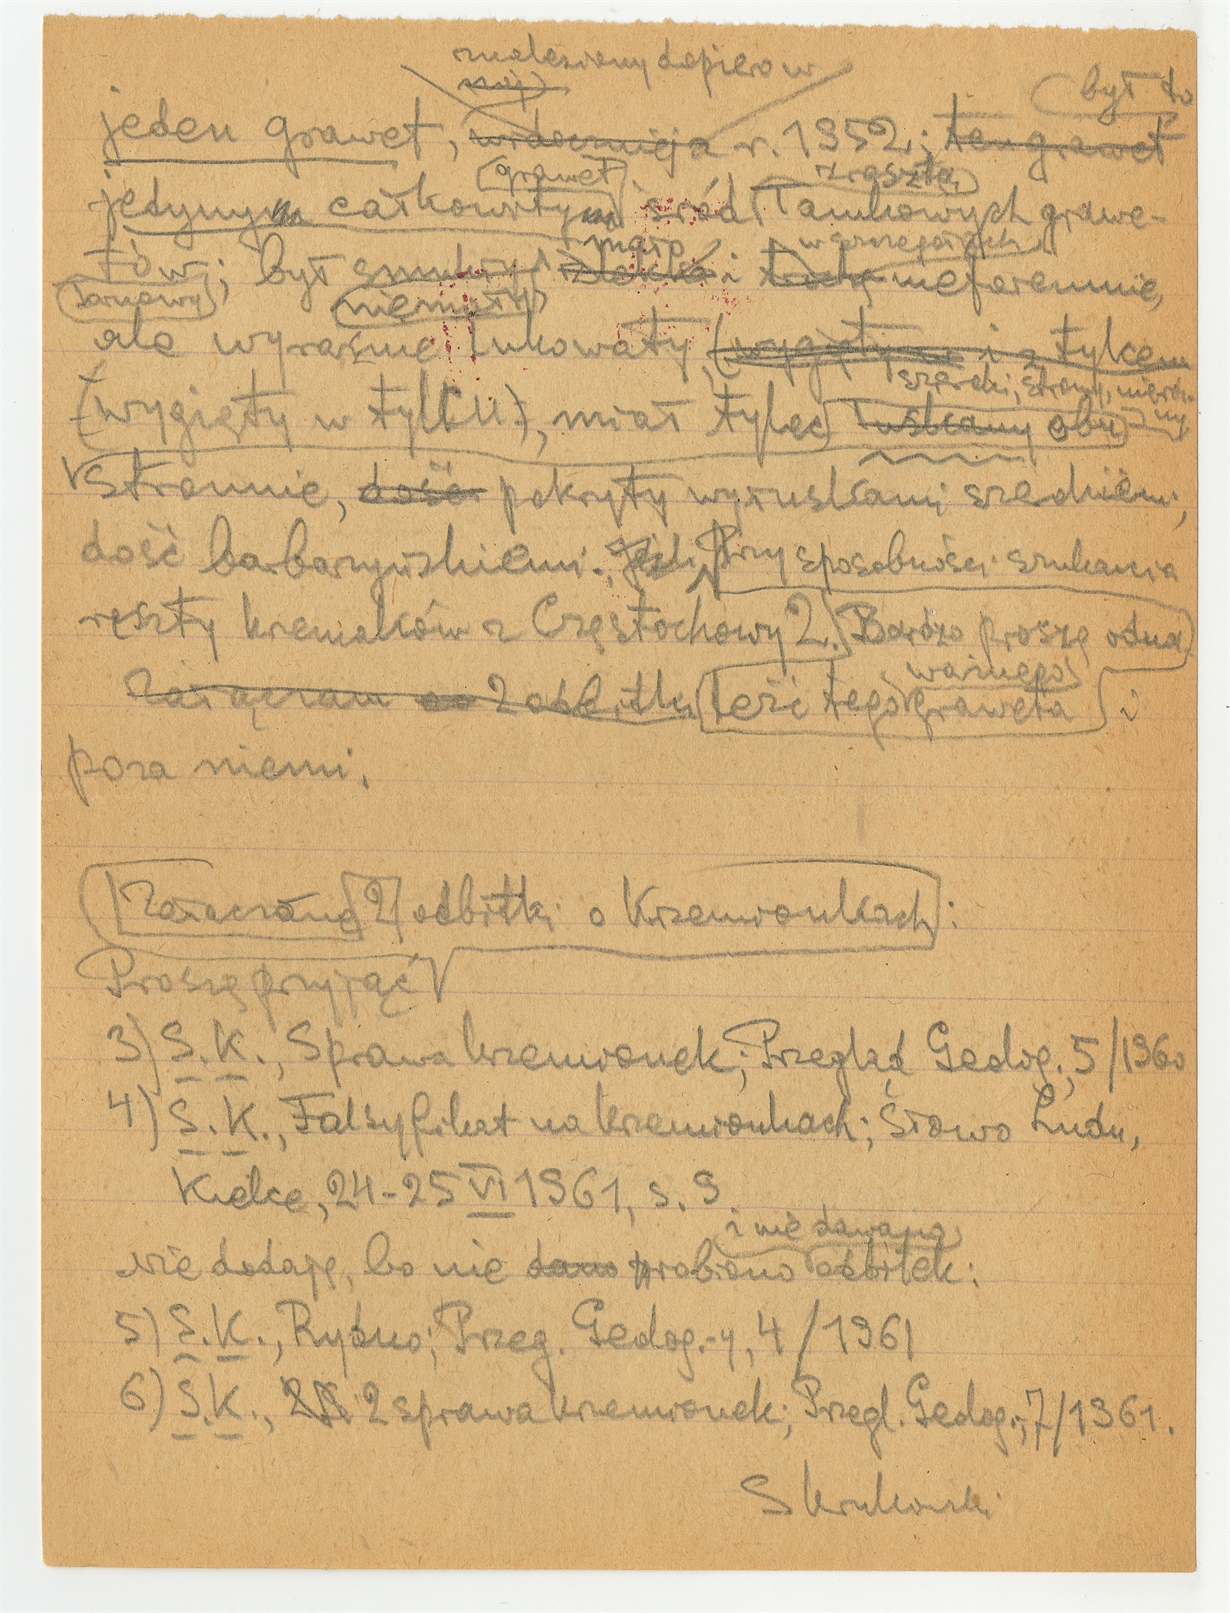 znaleziony dopiero w
był to
jeden grawet, r. 1952; ten grawet
(grawet) zresztą
jedynym całkowitym śród łamkowych grawe-
mało w szczegółach
tów; był smukły i nieforemnie,
niemały
ale wyraźnie łukowaty, (wygięty w i z tylcem
szeroki, stromy, nierów-
ny
(wygięty w tylcu), miał tylec łuskany obu
stronnie, dość pokryty wyłuskami średniemi,
dość barbarzyńskiemi. Przy sposobności szukania
reszty kremaków z Częstochowy 2. Bardzo proszę odna
ważnego
Załączam 2 odbitki leźć tego graweta i
poza niemi.
Załączone 2 odbitki o Krzemionkach:
Proszę przyjąć
3) S. K., Sprawa krzemionek; Przegląd Geolog., 5/1960
4) S. K., Falsyfikat na krzemionkach; Słowo Ludu,
Kielce, 24-25 VI 1961, s. 9
i nie dawano
nie dodaję, bo nie dano robiono odbitek:
5) S. K., Rydno; Przeg. Geolog.-y, 4/1961
6) S. K., 2 sprawa krzemionek; Przegl. Geolog.; 7/1961.
S Krukowski